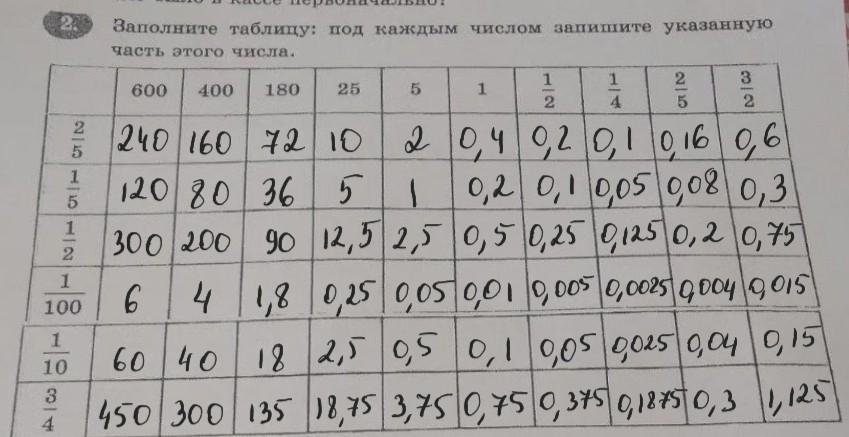 2. Заполните таблицу: под каждым числом запишите указанную
часть этого числа.
600 400 180 25 5 1 1/2 1/4 2/5 3/2
2/5 240 160 72 10 2 0,4 0,2 0,1 0,16 0,6
1/5 120 80 36 5 1 0,2 0,1 0,05 0,08 0,3
1/2 300 200 90 12,5 2,5 0,5 0,25 0,125 0,2 0,75
1/100 6 4 1,8 0,25 0,05 0,01 0,005 0,0025 0,004 0,015
1/10 60 40 18 2,5 0,5 0,1 0,05 0,025 0,04 0,15
3/4 450 300 135 18,75 3,75 0,75 0,375 0,1875 0,3 1,125